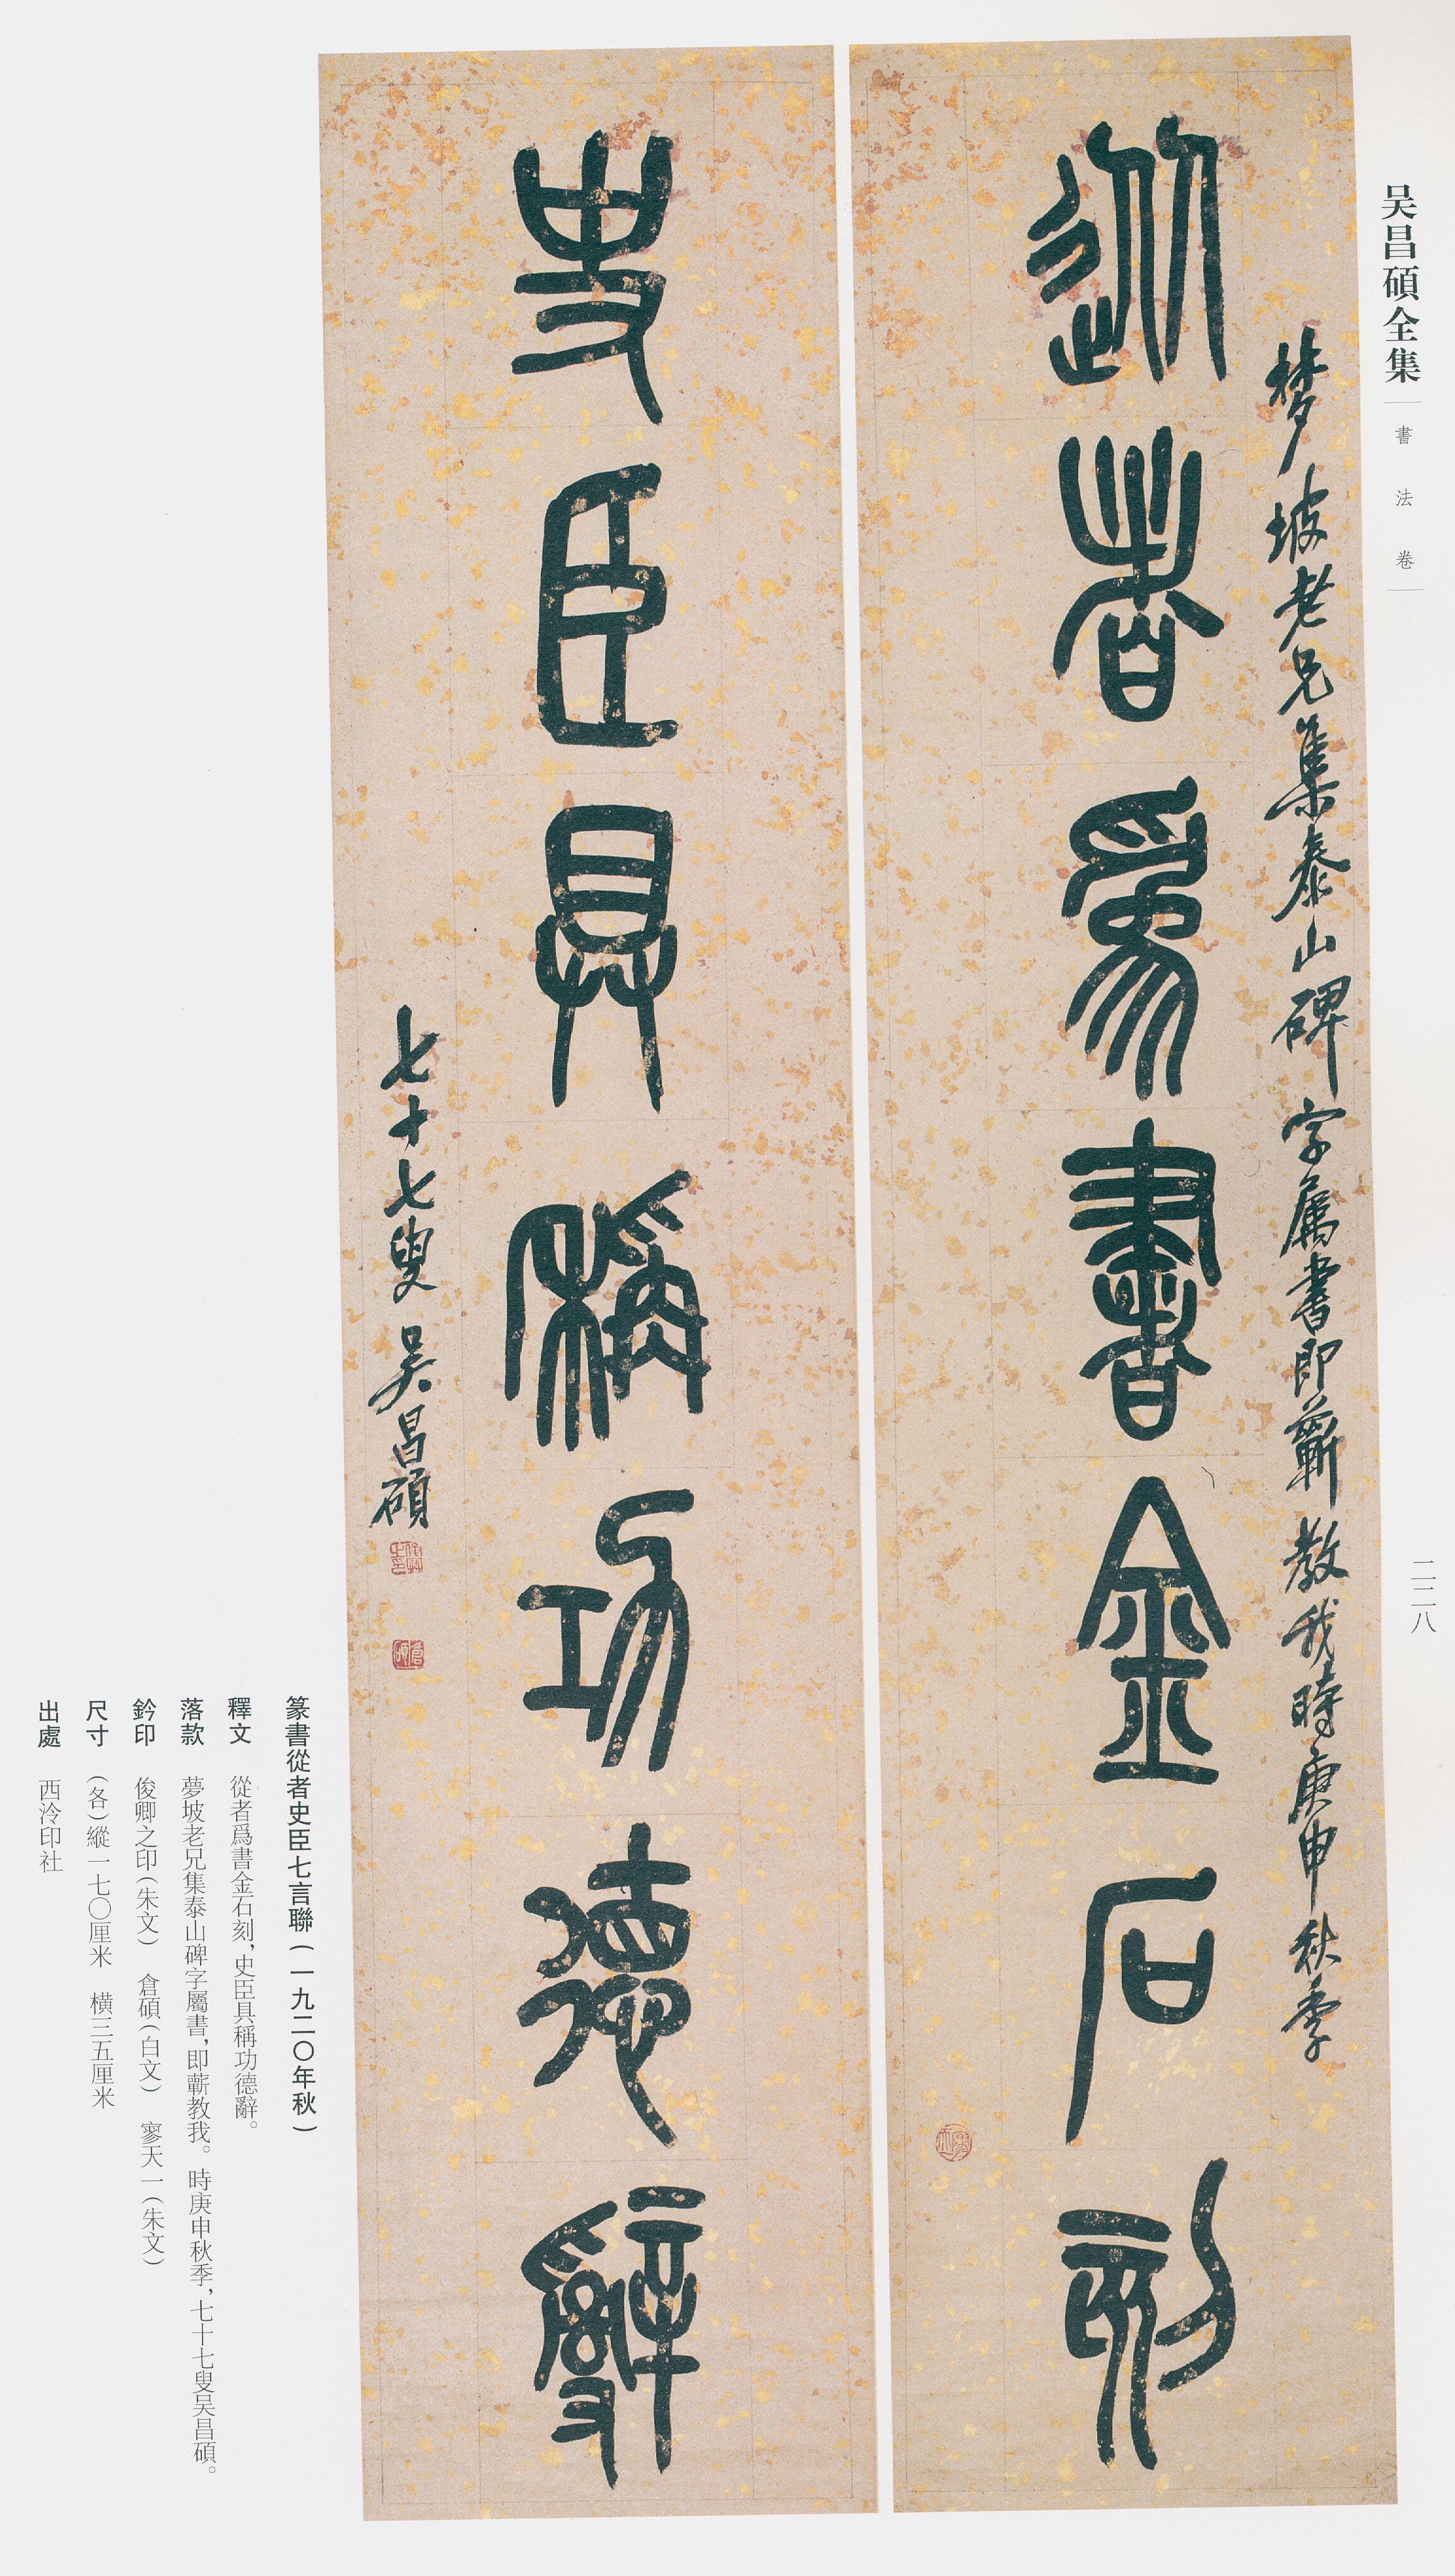 吴昌碩全集
書法卷
二二八
夢坡老兄集泰山碑字屬書即蘄教我時庚申秋季
從者爲書金石刻
史臣具稱功德辭
七十七叟吴昌碩
篆書從者史臣七言聯(一九二〇年秋)
釋文 從者爲書金石刻,史臣具稱功德辭。
落款 夢坡老兄集泰山碑字屬書,即蘄教我。時庚申秋季,七十七叟吴昌碩。
鈐印 俊卿之印(朱文) 倉碩(白文) 寥天一(朱文)
尺寸 (各)縱一七〇厘米 横三五厘米
出處 西泠印社
俊卿之印
倉碩
寥天一